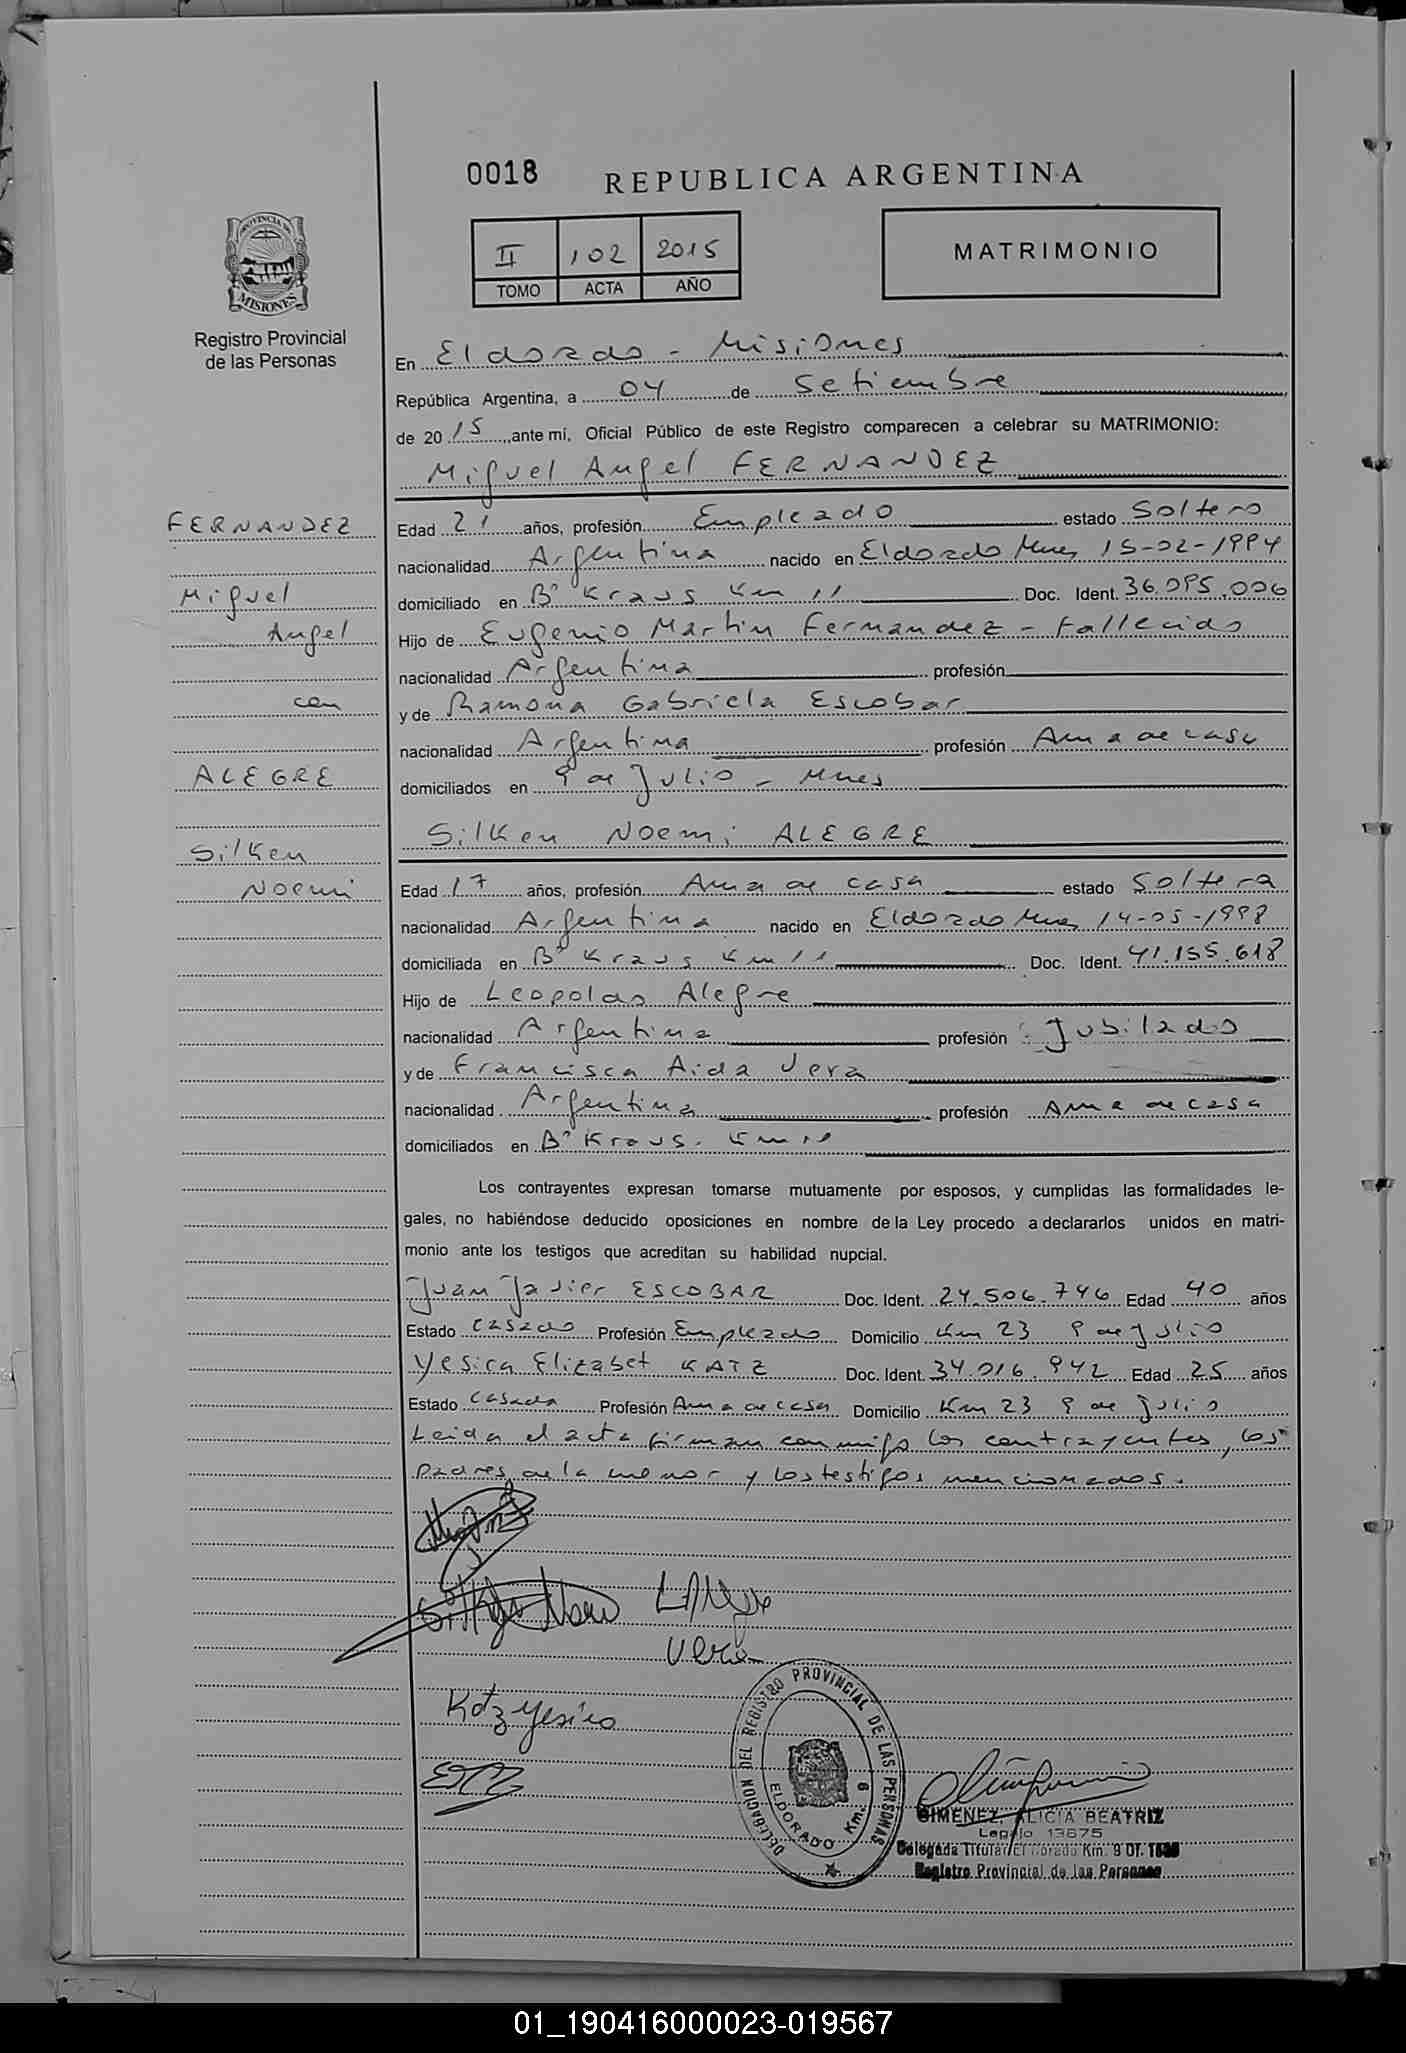 0018 REPUBLICA ARGENTINA
PROVINCIA DE
MISIONES
Registro Provincial
de las Personas
II 102 2015
TOMO ACTA AÑO
MATRIMONIO
En Eldorado - Misiones
República Argentina, a 04 de Setiembre
de 2015, ante mí, Oficial Público de este Registro comparecen a celebrar su MATRIMONIO:
Miguel Angel FERNANDEZ
FERNANDEZ
Miguel
Angel
con
ALEGRE
Silken
Noemi
Edad 21 años, profesión Empleado estado Soltero
nacionalidad Argentina nacido en Eldorado Mnes 15-02-1994
domiciliado en Bº Kraus Km 11 Doc. Ident. 36.095.006
Hijo de Eugenio Martin Fernandez - Fallecido
nacionalidad Argentina profesión
y de Ramona Gabriela Escobar
nacionalidad Argentina profesión Ama de casa
domiciliados en 9 de Julio - Mnes
Silken Noemi ALEGRE
Edad 17 años, profesión Ama de casa estado Soltera
nacionalidad Argentina nacido en Eldorado Mnes 14-05-1998
domiciliada en Bº Kraus Km 11 Doc. Ident. 41.155.618
Hijo de Leopoldo Alegre
nacionalidad Argentina profesión Jubilado
y de Francisca Aida Vera
nacionalidad Argentina profesión Ama de casa
domiciliados en Bº Kraus. Km 11
Los contrayentes expresan tomarse mutuamente por esposos, y cumplidas las formalidades le-
gales, no habiéndose deducido oposiciones en nombre de la Ley procedo a declararlos unidos en matri-
monio ante los testigos que acreditan su habilidad nupcial.
Juan Javier ESCOBAR Doc. Ident. 24.506.746 Edad 40 años
Estado Casado Profesión Empleado Domicilio Km 23 9 de Julio
Yesica Elizabet KATZ Doc. Ident. 34.016.942 Edad 25 años
Estado Casada Profesión Ama de casa Domicilio Km 23 9 de Julio
Leida el acta firman conmigo los contrayentes, los
padres de la menor y los testigos mencionados.
Vera
Katz Yesica
DELEGACION DEL REGISTRO PROVINCIAL DE LAS PERSONAS
ELDORADO Km. 9
GIMENEZ, ALICIA BEATRIZ
Legajo 13675
Delegada Titular Eldorado Km. 9 Of.
Registro Provincial de las Personas
01_190416000023-019567